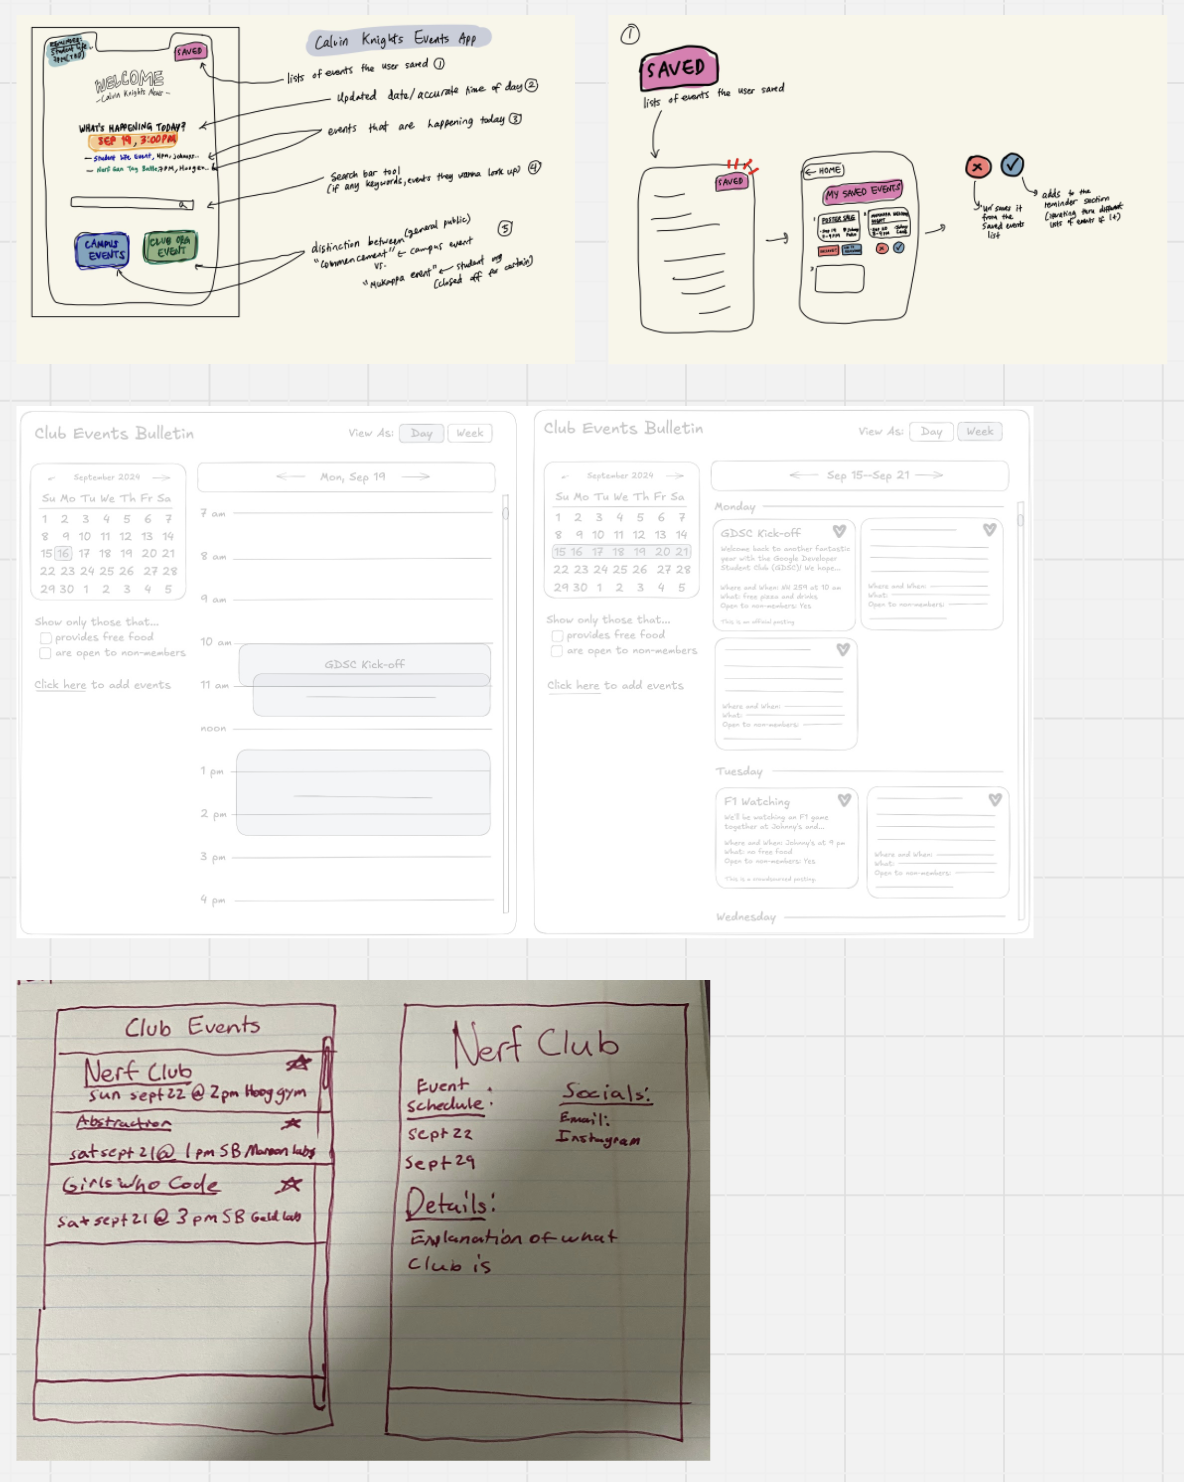 REMINDER:
Student Life..
SAVED
WELCOME
-Calvin Knights News-
WHAT'S HAPPENING TODAY?
SEP 19, 3:00PM
- Student Life Event, 4PM, Johnnys...
CAMPUS
EVENTS
CLUB ORG
EVENT
Calvin Knights Events App
lists of events the user saved ①
Updated date/accurate time of day ②
events that are happening today ③
Search bar tool ④
(if any keywords, events they wanna look up)
distinction between (general public) ⑤
"Commencement" ← campus event
vs.
"Mukappa event" ← student org
(closed off for certain)
①
SAVED
lists of events the user saved
SAVED
← HOME
MY SAVED EVENTS
POSTER SALE
un saves it
from the
Saved events
list
adds to the
reminder section
(iterating thru different
lists of events if 1+)
Club Events Bulletin
View As: Day Week
← September 2024 →
Su Mo Tu We Th Fr Sa
1 2 3 4 5 6 7
8 9 10 11 12 13 14
15 16 17 18 19 20 21
22 23 24 25 26 27 28
29 30 1 2 3 4 5
Show only those that...
provides free food
are open to non-members
Click here to add events
← Mon, Sep 19 →
7 am
8 am
9 am
10 am
GDSC Kick-off
11 am
noon
1 pm
2 pm
3 pm
4 pm
Club Events Bulletin
View As: Day Week
← September 2024 →
Su Mo Tu We Th Fr Sa
1 2 3 4 5 6 7
8 9 10 11 12 13 14
15 16 17 18 19 20 21
22 23 24 25 26 27 28
29 30 1 2 3 4 5
Show only those that...
provides free food
are open to non-members
Click here to add events
← Sep 15—Sep 21 →
Monday
GDSC Kick-off
Welcome back to another fantastic
year with the Google Developer
Student Club (GDSC)! We hope...
Where and When: NH 259 at 10 am
What: free pizza and drinks
Open to non-members: Yes
This is an official posting
Where and When:
What:
Open to non-members:
Where and When:
What:
Open to non-members:
Tuesday
F1 Watching
We'll be watching an F1 game
together at Johnny's and...
Where and When: Johnny's at 9 pm
What: no free food
Open to non-members: Yes
This is a crowdsourced posting
Where and When:
What:
Open to non-members:
Wednesday
Club Events
Nerf Club
sun sept 22 @ 2pm Hoog gym
Abstraction
sat sept 21 @ 1pm SB Maroon labs
Girls Who Code
sat sept 21 @ 3pm SB Gold lab
Nerf Club
Event
schedule:
sept 22
sept 29
Socials:
Email:
Instagram
Details:
Explanation of what
Club is